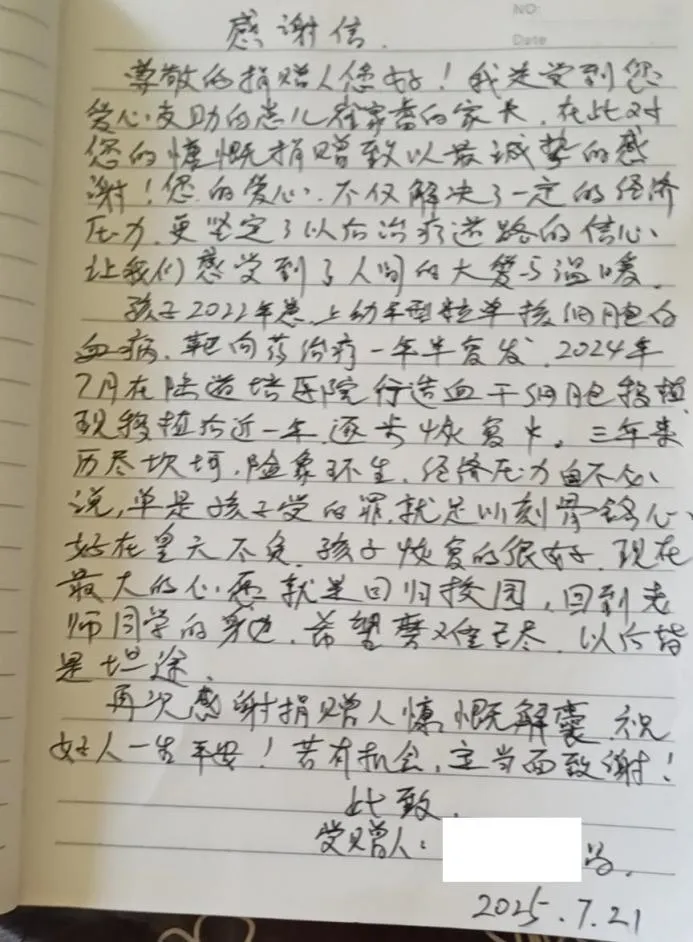 NO:
Date
感谢信.
尊敬的捐赠人您好！我是受到您
爱心支助的患儿崔家睿的家长，在此对
您的慷慨捐赠致以最诚挚的感
谢！您的爱心、不仅解决了一定的经济
压力，更坚定了以后治疗道路的信心、
让我们感受到了人间的大爱与温暖。
孩子2022年患上幼年型粒单核细胞白
血病、靶向药治疗一年半复发，2024年
7月在陆道培医院行造血干细胞移植，
现移植后近一年，逐步恢复中。三年来
历尽坎坷，险象环生，经济压力自不必
说，单是孩子受的罪，就足以刻骨铭心、
好在皇天不负，孩子恢复的很好，现在
最大的心愿就是回归校园，回到老
师同学的身边，希望磨难已尽，以后皆
是坦途，
再次感谢捐赠人慷慨解囊，祝
好人一生平安！若有机会，定当面致谢！
此致，
受赠人：
2025.7.21